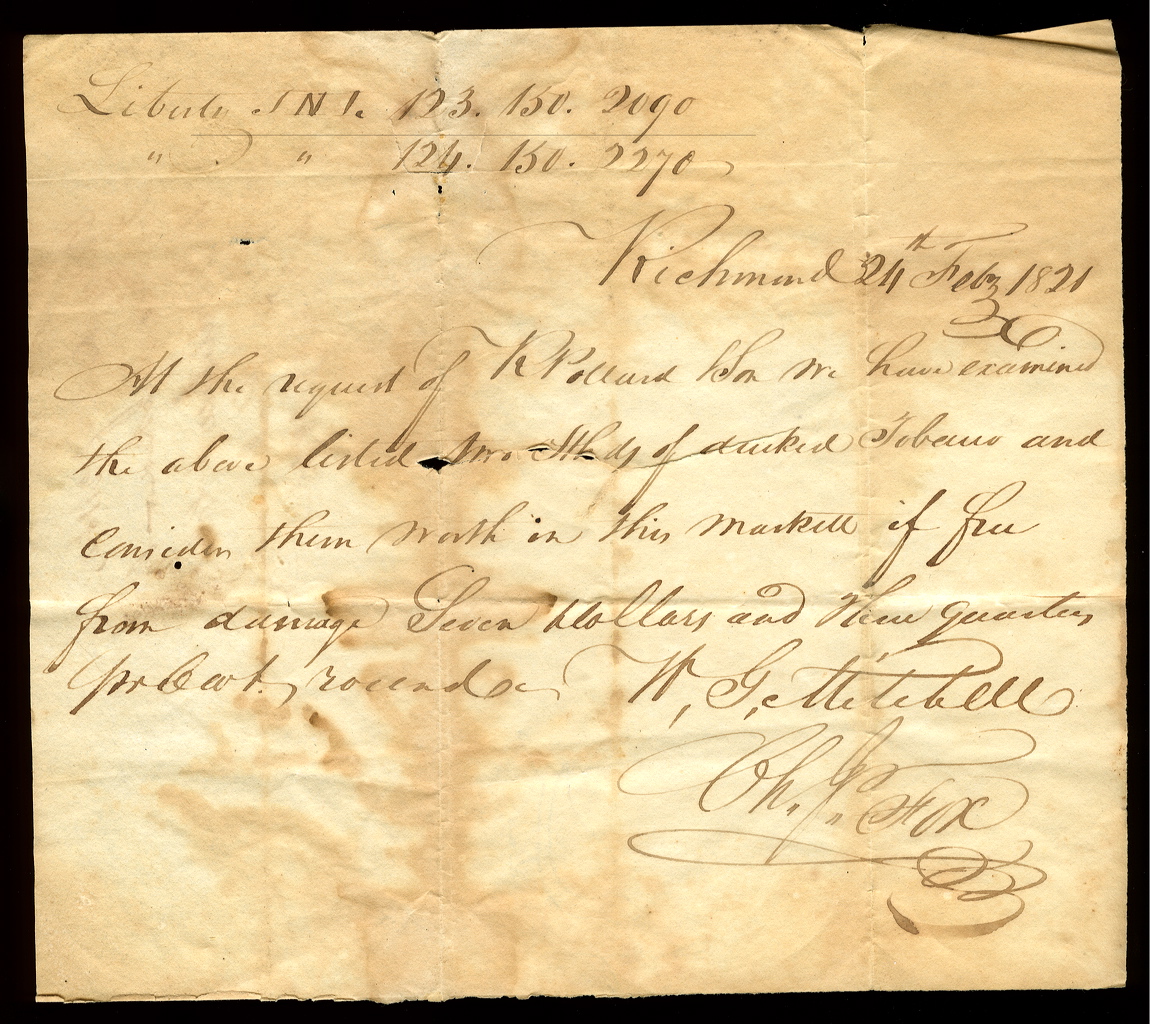 Liberty J N L. 123. 150. 2090
" " 124. 150. 2270
Richmond 24th Feby 1821
At the request of R Pollard & Son we have examined
the above listed two Hhds of ducked Tobacco and
consider them worth in this markett if free
from damage Seven Dollars and three quarters
pr Cwt. round.
W, G, Mitchell
Ch. J. Fox